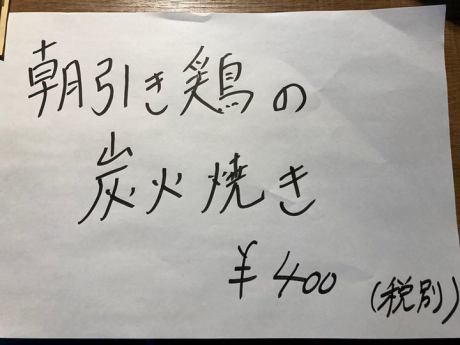 朝引き鶏の
炭火焼き
¥400 (税別)